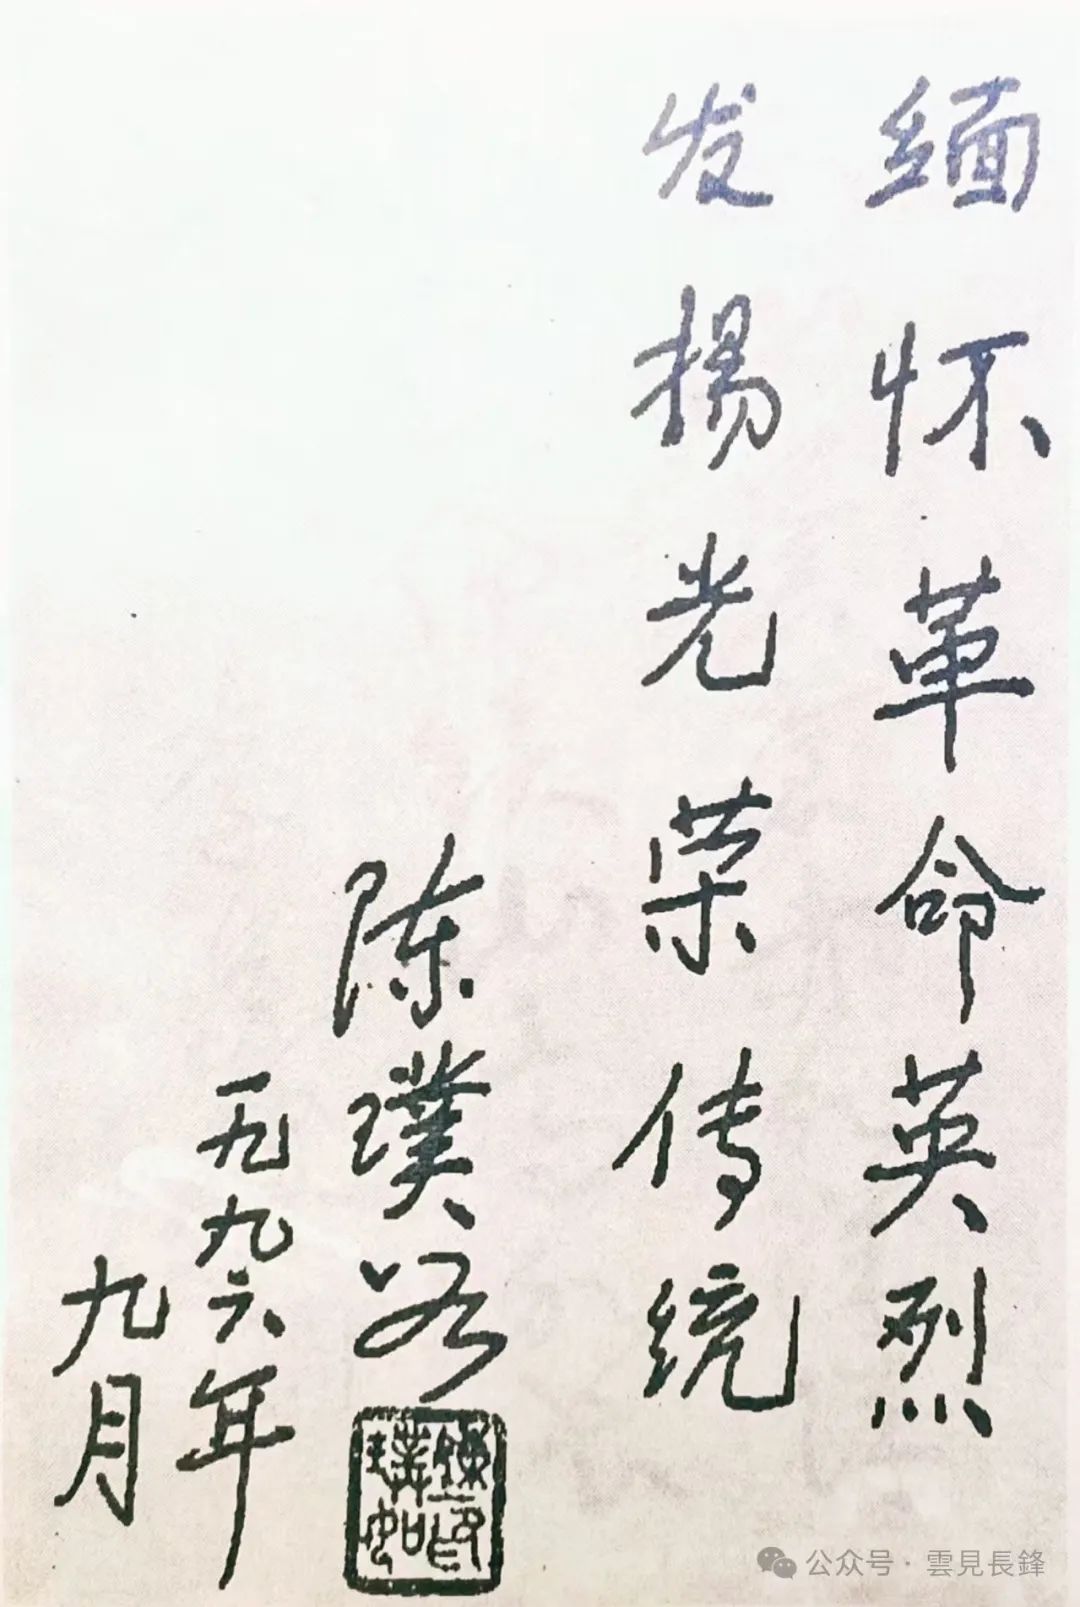 缅怀革命英烈
发扬光荣传统
陈璞如
一九九六年
九月
陈璞如印
公众号·雲見長鋒